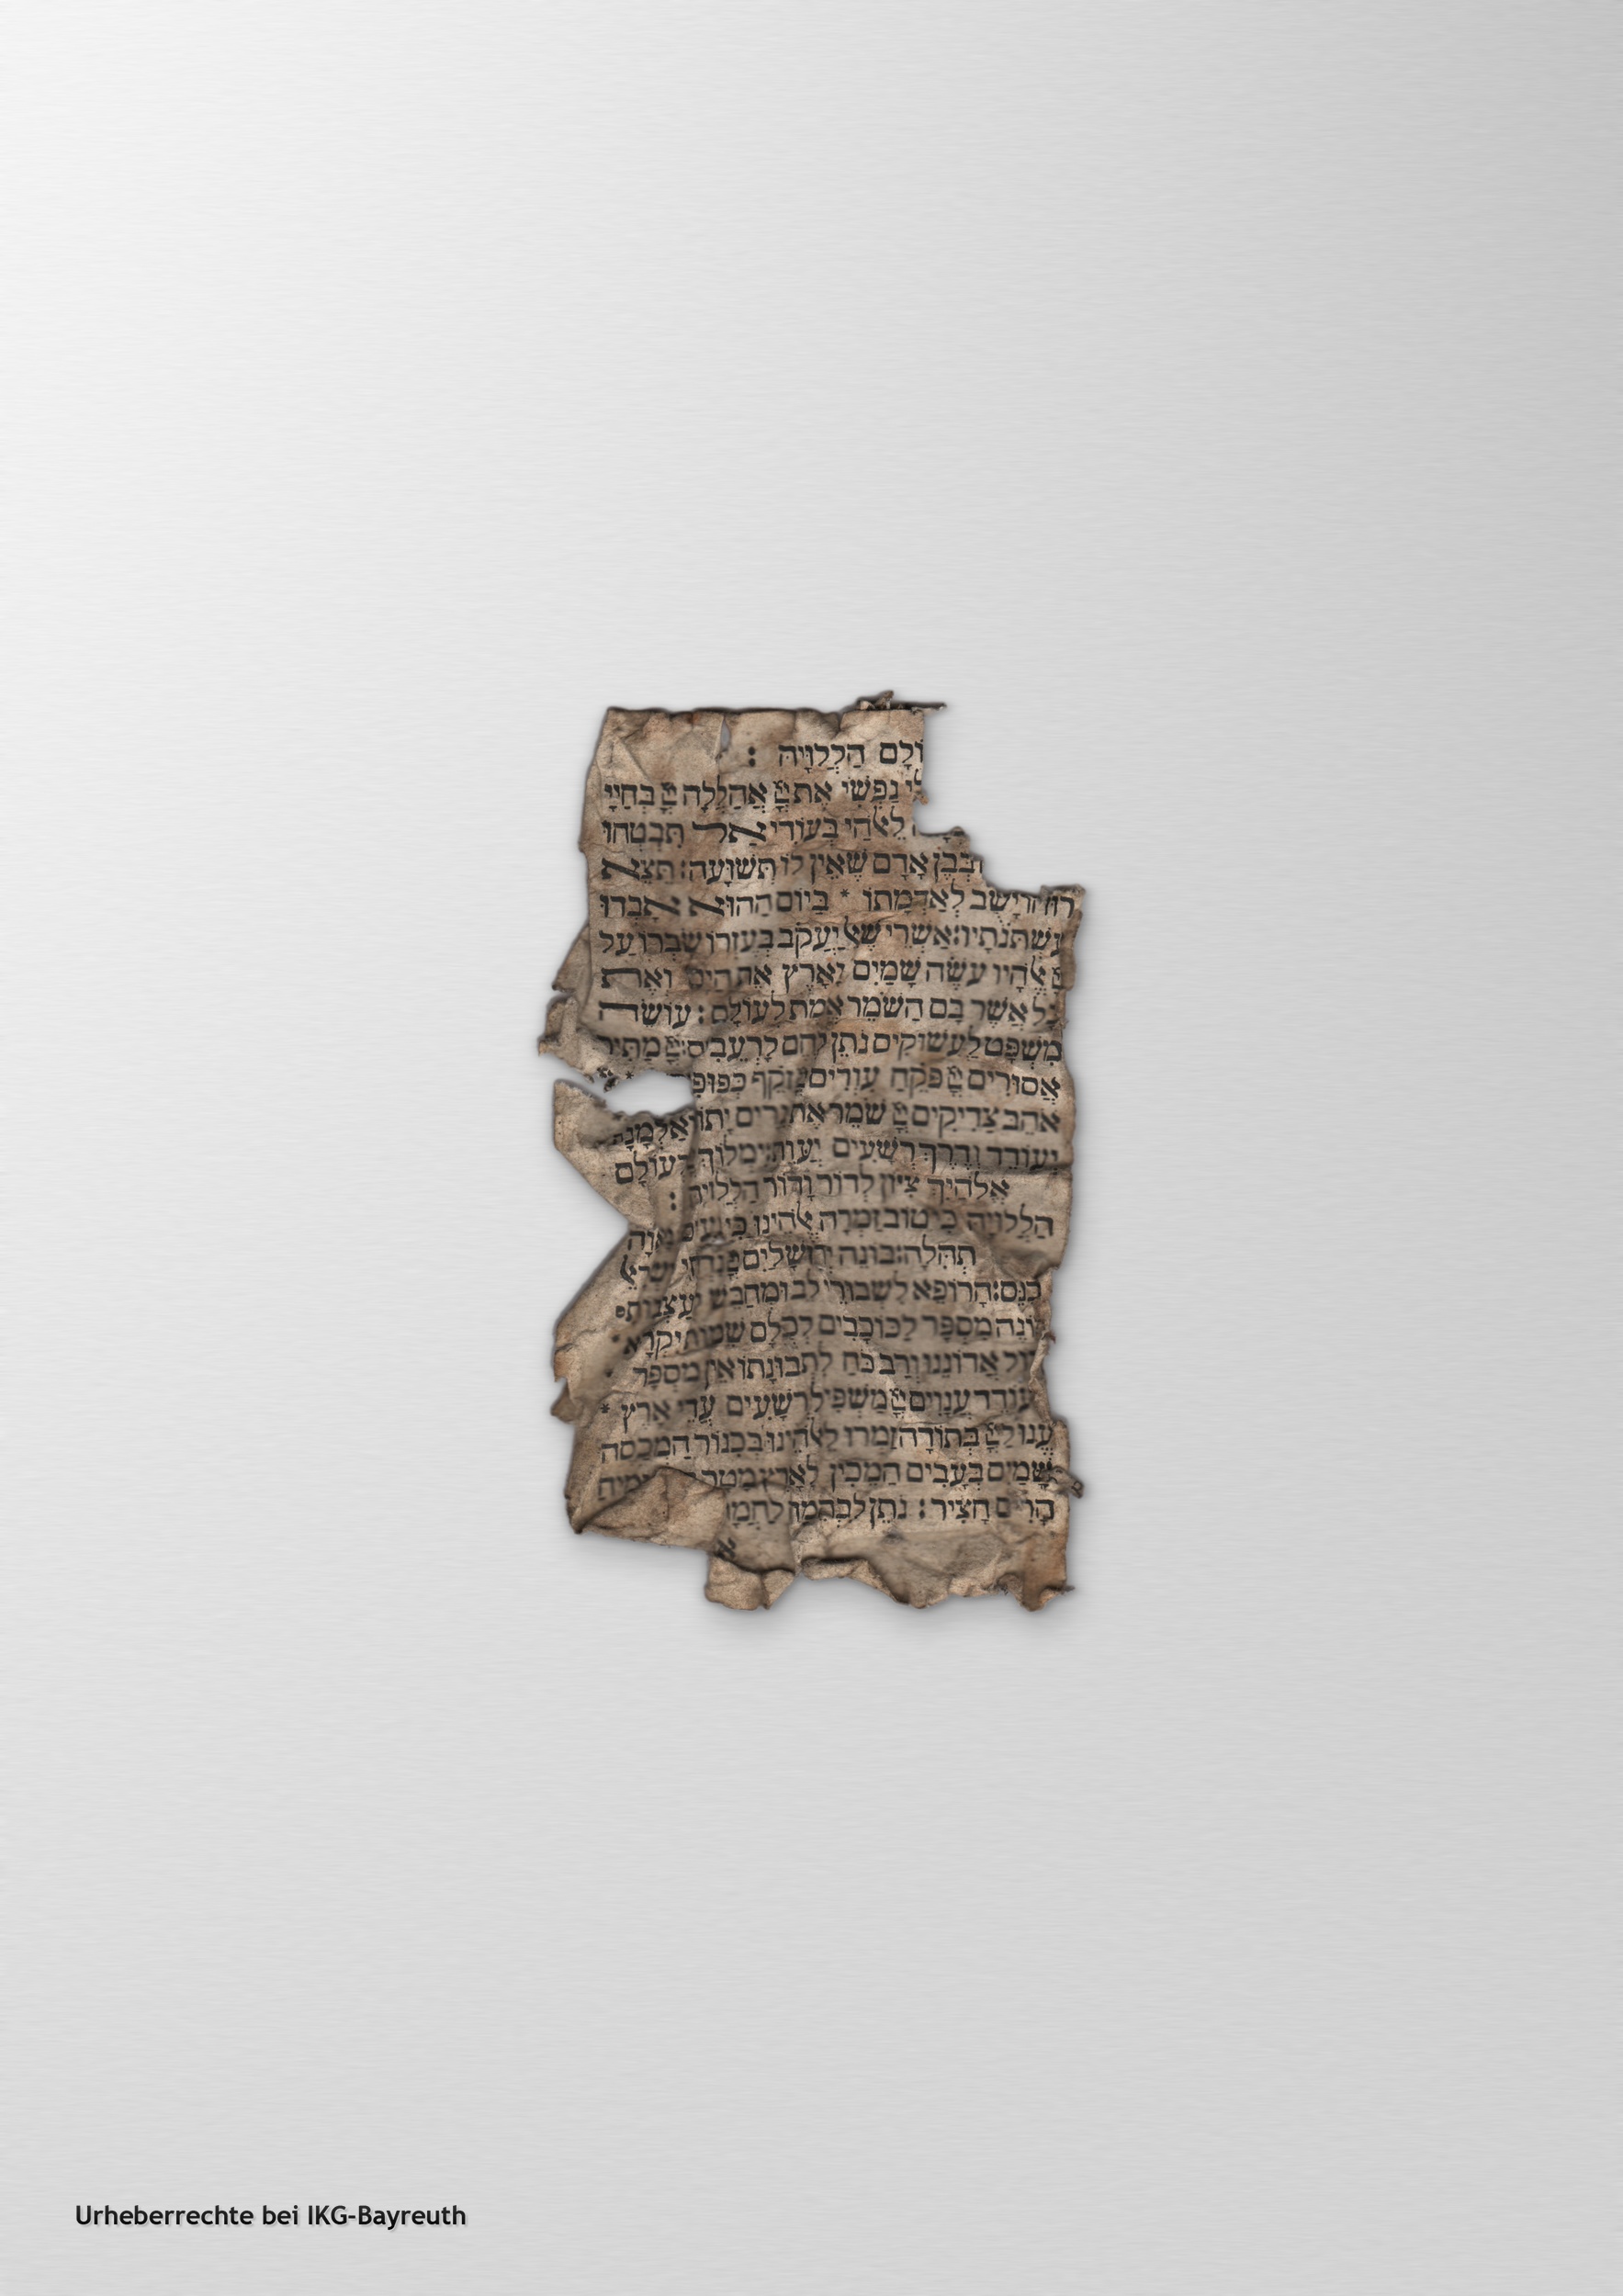 ולם הללויה :
נפשי את יי אהללה יי בחיי
לאלהי בעודי אל תבטחו
בבן אדם שאין לו תשועה: תצא
רוחו ישב לאדמתו * ביום ההוא אבדו
עשתנתיו: אשרי שאל יעקב בעזרו שברו על
יי אלהיו עשה שמים וארץ את הים ואת
כל אשר בם השמר אמת לעולם: עושה
משפט לעשוקים נתן לחם לרעבים יי מתיר
אסורים יי פקח עורים יי זוקף כפופים
אהב צדיקים יי שמר את גרים יתום ואלמנה
יעודד ודרך רשעים יעות: ימלוך לעולם
אלהיך ציון לדור ודור הללויה :
הללויה כי טוב זמרה אלהינו כי נעים נאוה
תהלה: בונה ירושלים יי נדחי ישראל
יכנס: הרופא לשבורי לב ומחבש לעצבותם
מונה מספר לכוכבים לכלם שמות יקרא
גדול אדוננו ורב כח לתבונתו אין מספר
מעודד ענוים יי משפיל רשעים עדי ארץ *
ענו ליי בתודה זמרו לאלהינו בכנור המכסה
שמים בעבים המכין לארץ מטר המצמיח
הרים חציר : נתן לבהמה לחמה
Urheberrechte bei IKG-Bayreuth